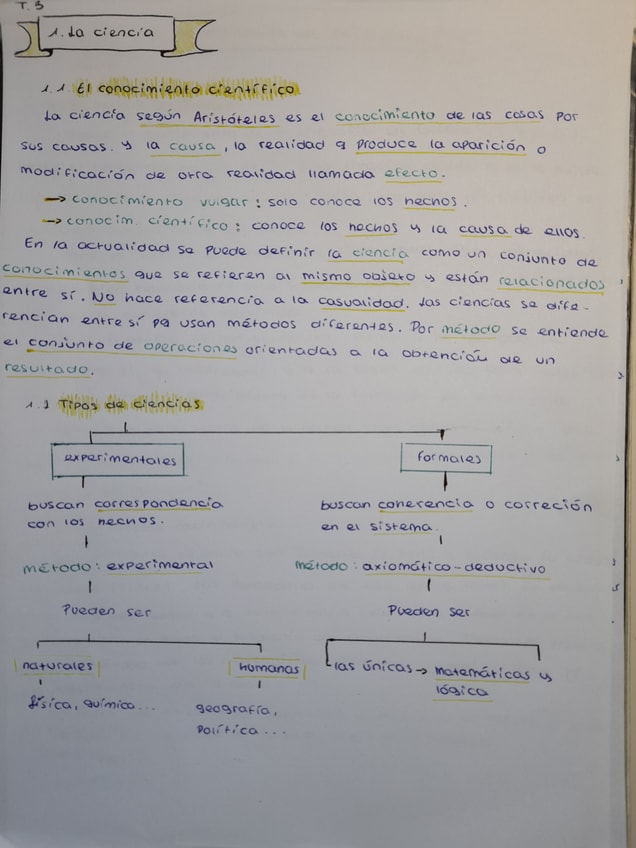 T. 3
1. La ciencia
1.1 El conocimiento científico
La ciencia según Aristóteles es el conocimiento de las cosas por
sus causas. y la causa, la realidad q produce la aparición o
modificación de otra realidad llamada efecto.
→ conocimiento vulgar: solo conoce los hechos.
→ conocim. científico: conoce los hechos y la causa de ellos.
En la actualidad se puede definir la ciencia como un conjunto de
conocimientos que se refieren al mismo objeto y están relacionados
entre sí. No hace referencia a la casualidad. Las ciencias se dife-
rencian entre sí pq usan métodos diferentes. Por método se entiende
el conjunto de operaciones orientadas a la obtención de un
resultado.
1.2 Tipos de ciencias
experimentales
formales
buscan correspondencia
con los hechos.
buscan coherencia o correción
en el sistema.
método: experimental
método: axiomático-deductivo
Pueden ser
Pueden ser
naturales
humanas
las únicas → matemáticas y
lógica
física, química...
geografía,
política...